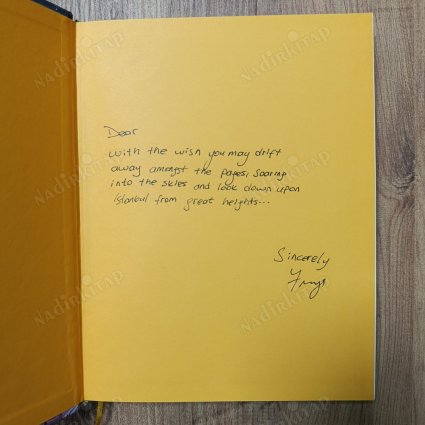 Dear
With the wish you may drift
away amongst the pages, soaring
into the skies and look down upon
istanbul from great heights...
Sincerely
NADİRKİTAP